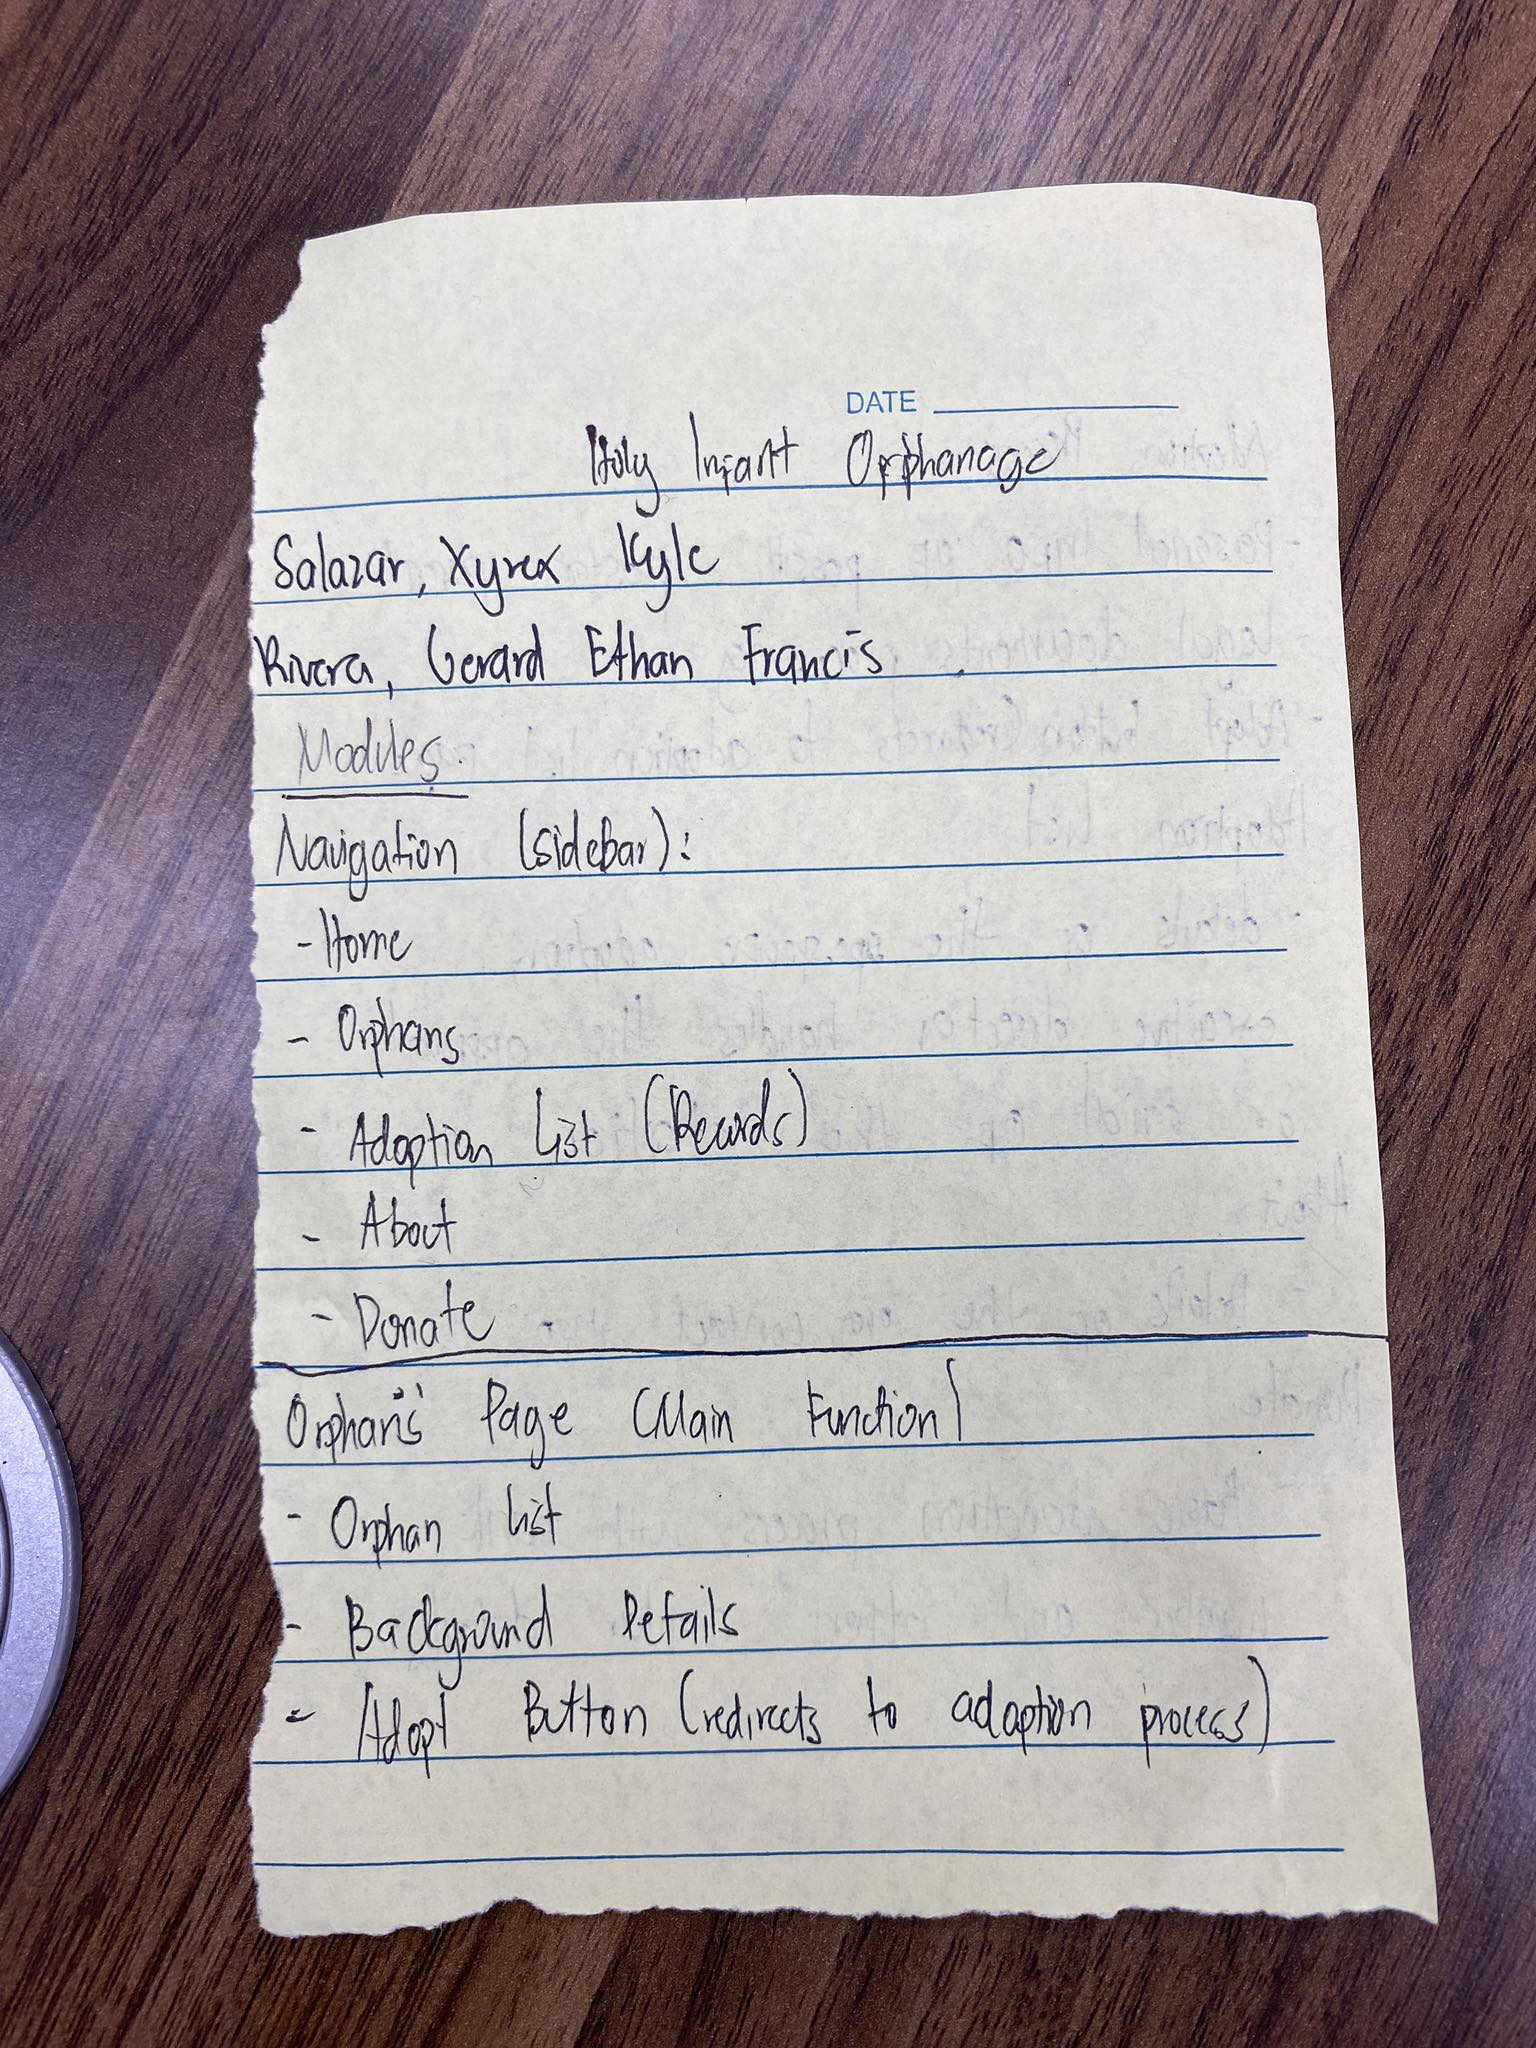 DATE
Holy Infant Orphanage
Salazar, Xyrex Kyle
Rivera, Gerard Ethan Francis
Modules
Navigation (sidebar):
- Home
- Orphans
- Adoption List (Records)
- About
- Donate
Orphan's Page (Main Function)
- Orphan List
- Background Details
- Adopt Button (redirects to adoption process)